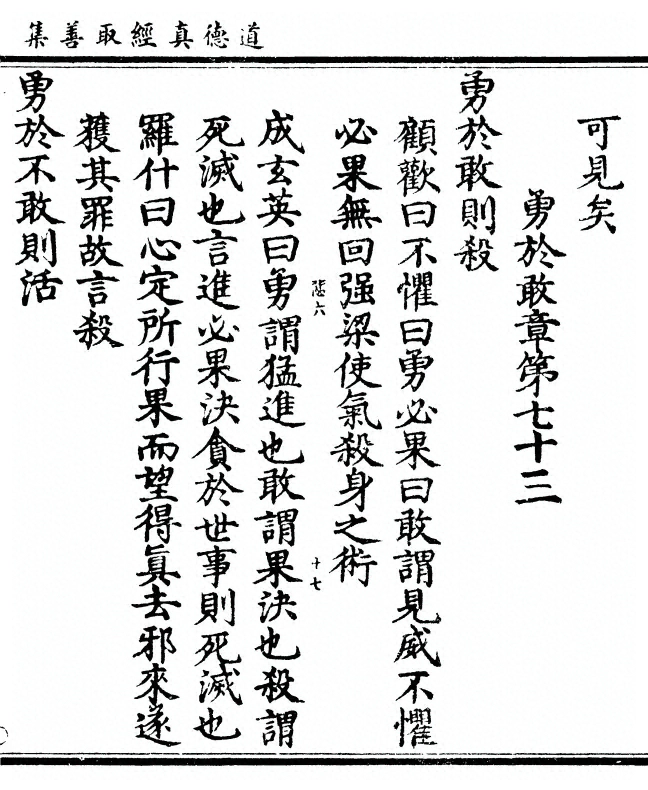 道德真經取善集
可見矣
勇於敢章第七十三
勇於敢則殺
顧歡曰不懼曰勇必果曰敢謂見威不懼
必果無回强梁使氣殺身之術
十七
成玄英曰勇謂猛進也敢謂果決也殺謂
死滅也言進必果決貪於世事則死滅也
羅什曰心定所行果而望得眞去邪來遂
獲其罪故言殺
勇於不敢則活